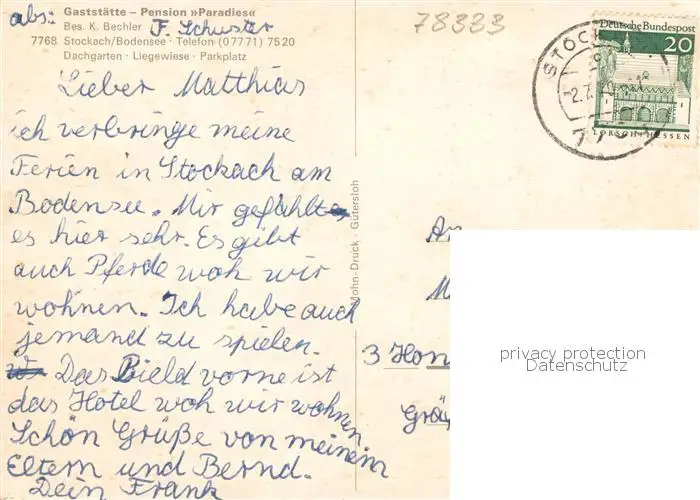 abs: Gaststätte – Pension »Paradies«
Bes. K. Bechler F. Schuster
7768 Stockach/Bodensee · Telefon (07771) 7520
Dachgarten · Liegewiese · Parkplatz
78333
Deutsche Bundespost
20
LORSCH · HESSEN
STOCK
-2.7.
Lieber Matthias
ich verbringe meine
Ferien in Stockach am
Bodensee. Mir gefählt
es hier sehr. Es gibt
auch Pferde woh wir
wohnen. Ich habe auch
jemand zu spielen.
Das Bield vorne ist
das Hotel woh wir wohnen
Schön Grüße von meinem
Eltern und Bernd.
Dein Frank
Mohn-Druck · Gütersloh
An
M
3 Hon
Grä
privacy protection
Datenschutz